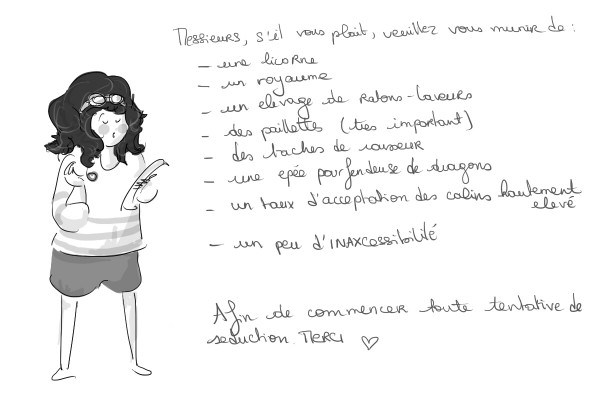 Messieurs, s'il vous plait, veuillez vous munir de :
- une licorne
- un royaume
- un elevage de Ratons-Laveurs
- des paillettes (très important)
- des taches de rousseur
- une epée pourfendeuse de dragons
- un taux d'acceptation des calins hautement
elevé
- un peu d'INAXcessibilité
Afin de commencer toute tentative de
seduction. MERCI ♡